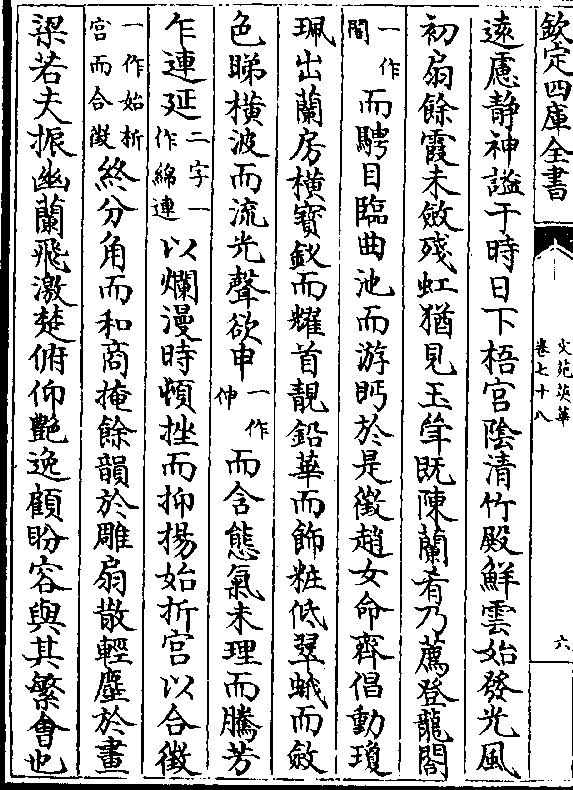 欽定四庫全書
文苑英華
卷七十八
六
遠慮静神謐于時日下梧宫陰清竹殿鮮雲始發光風
初扇餘霞未斂殘虹猶見玉斝既陳蘭肴乃薦登龍閣
一作閤而騁目臨曲池而游眄於是徵趙女命齊倡動瓊
珮出蘭房横寳釵而耀首靚鉛華而飾粧低翠蛾而斂
色睇横波而流光聲欲申一作伸而含態氣未理而騰芳
乍連延二字一作綿連以爛漫時頓挫而抑揚始折宫以合徵
一作始析宫而合徵終分角而和商掩餘韻於雕扇散輕塵於畫
梁若夫振幽蘭飛激楚俯仰艶逸顧盼容與其繁會也